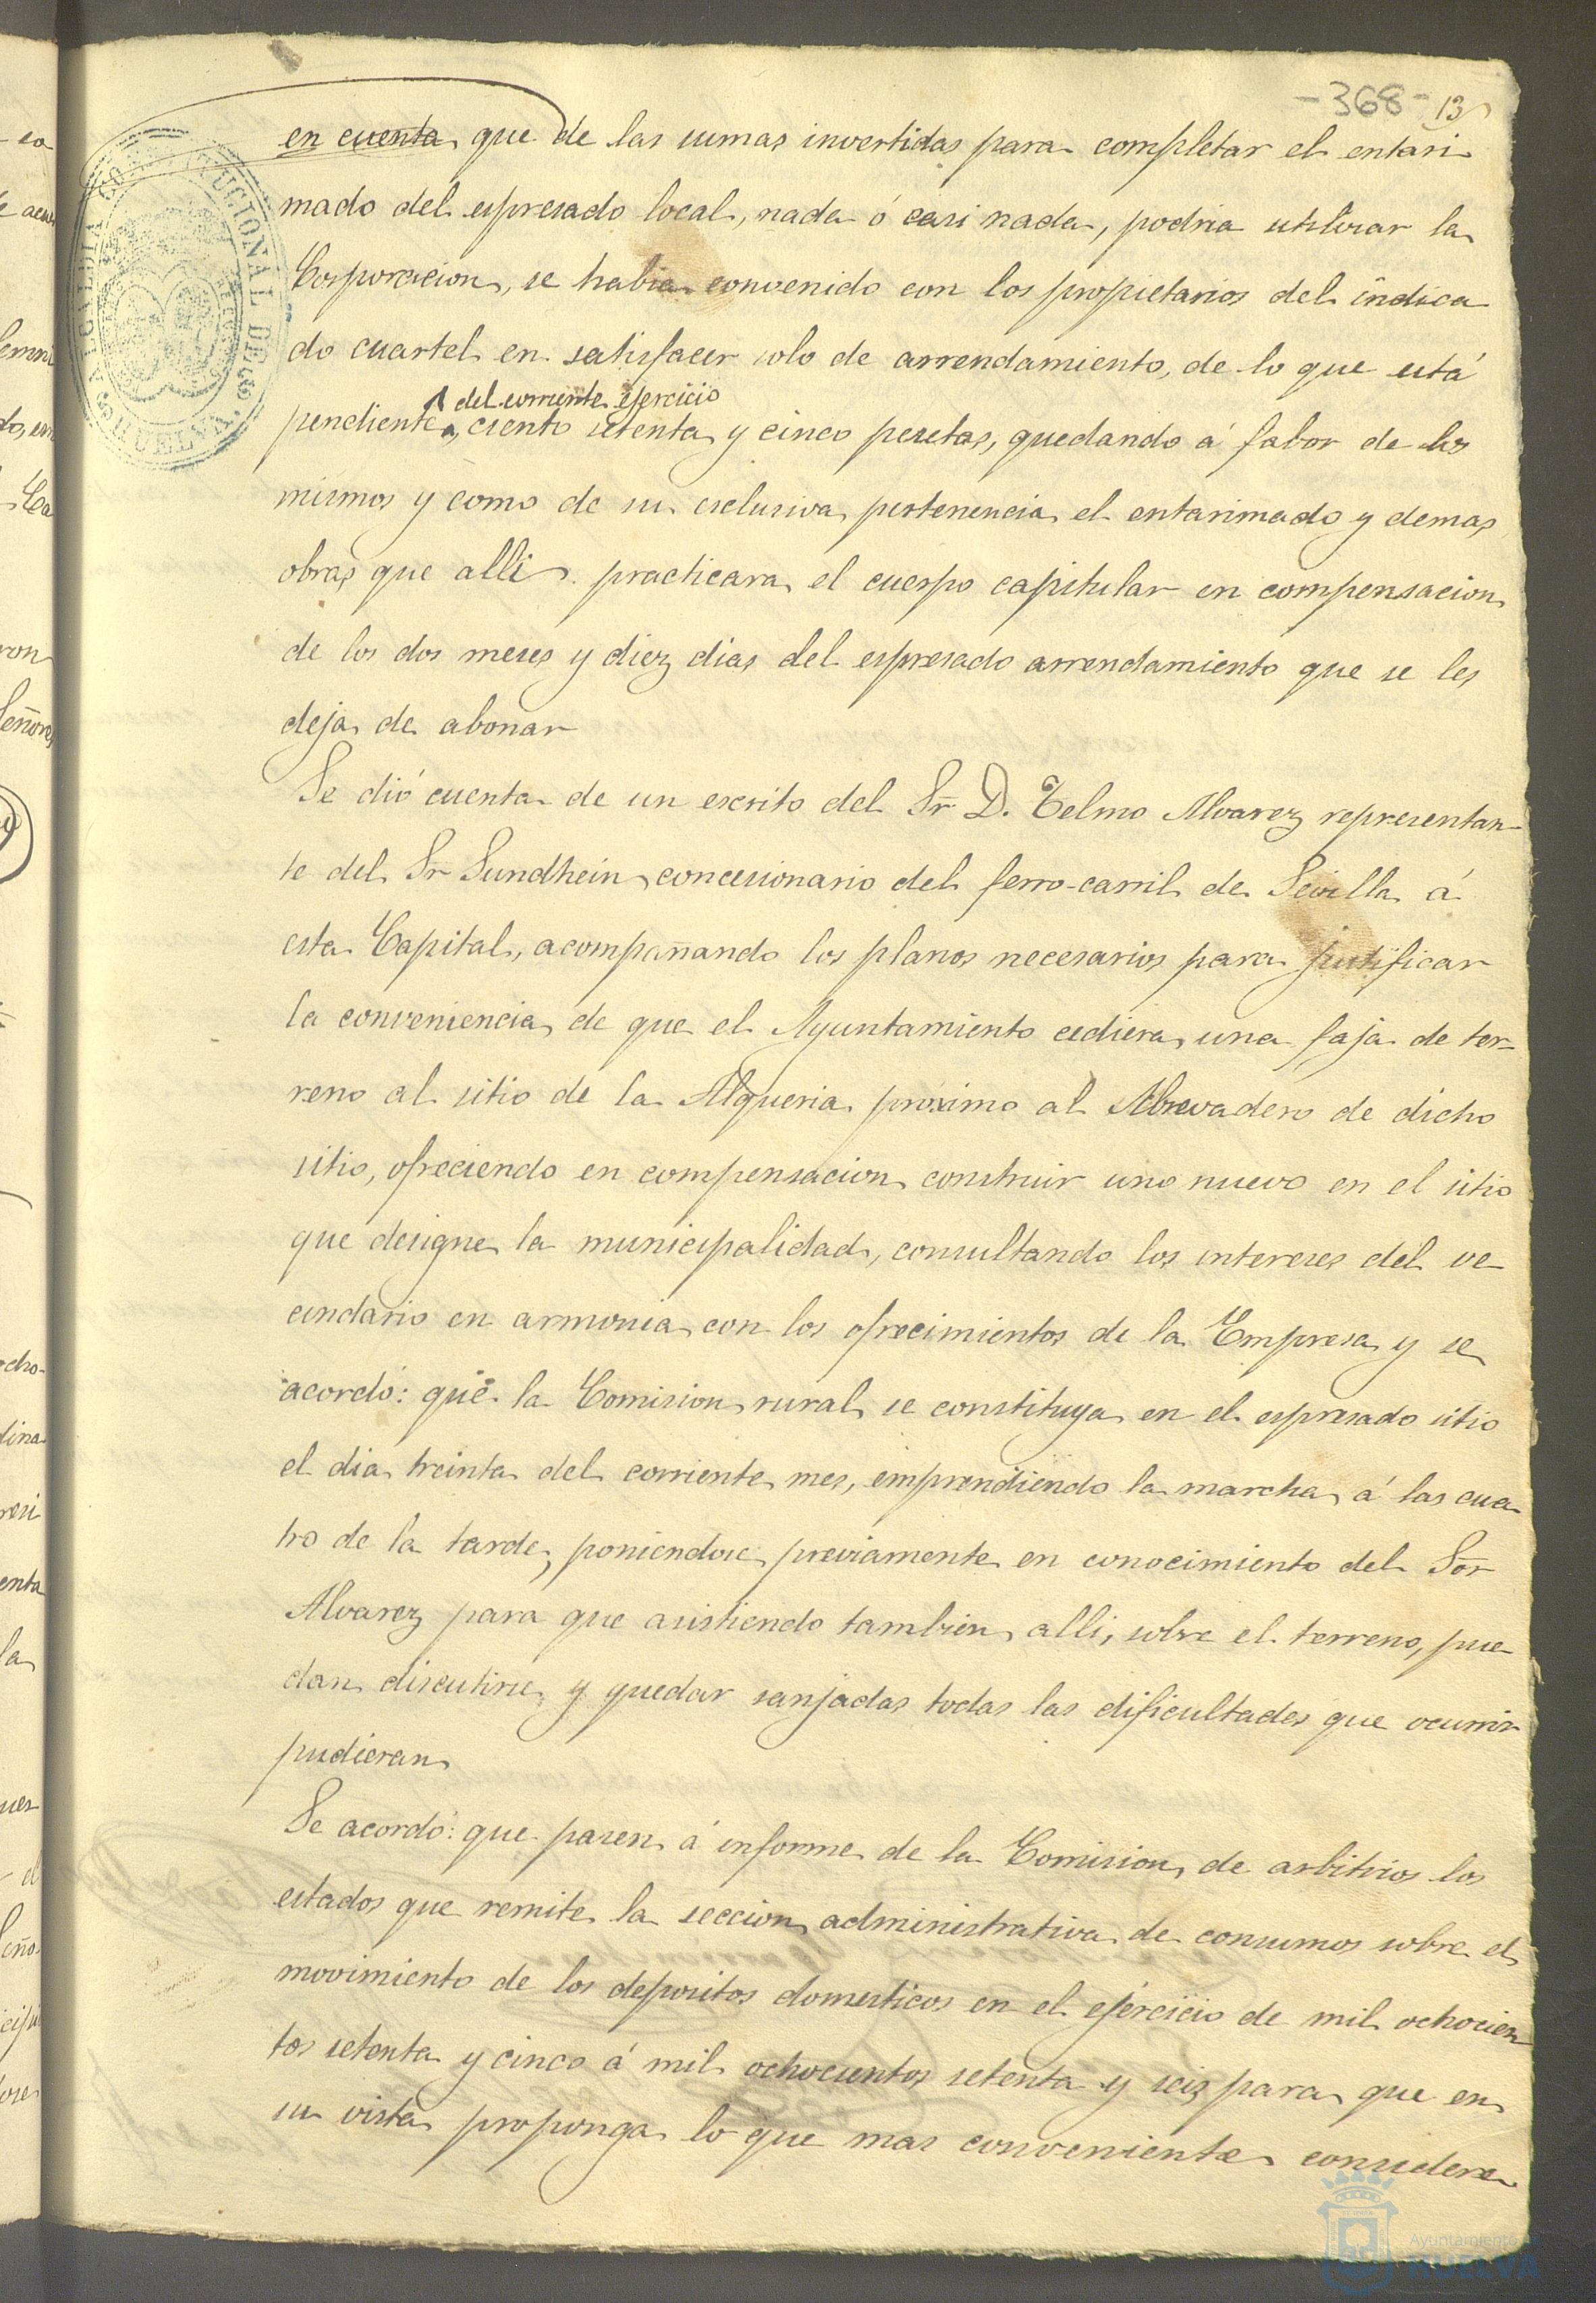 -368- 13
en cuenta que de las sumas invertidas para completar el entari
mado del espresado local, nada ó casi nada, podria utilizar la
Corporacion, se habia convenido con los propietarios del indica
do cuartel en satisfacer solo de arrendamiento, de lo que está
del corriente ejercicio
pendiente, ciento setenta y cinco pesetas, quedando á fabor de los
mismos y como de su esclusiva pertenencia el entarimado y demas
obras que alli practicara el cuerpo capitular en compensacion
de los dos meses y diez dias del espresado arrendamiento que se les
deja de abonar
Se dió cuenta de un escrito del Sr D. Telmo Alvarez representan-
te del Sr Sundhein concesionario del ferro-carril de Sevilla á
esta Capital, acompañando los planos necesarios para justificar
la conveniencia de que el Ayuntamiento cediera una faja de ter-
reno al sitio de la Alqueria próximo al Abrevadero de dicho
sitio, ofreciendo en compensacion construir uno nuevo en el sitio
que designe la municipalidad, consultando los intereses del ve
cindario en armonia con los ofrecimientos de la Empresa y se
acordó: que la Comision rural se constituya en el espresado sitio
el dia treinta del corriente mes, emprendiendo la marcha á las cua
tro de la tarde, poniendose previamente en conocimiento del Sor
Alvarez para que asistiendo tambien alli, sobre el terreno, pue-
dan discutirse y quedar sanjadas todas las dificultades que ocurrir
pudieran
Se acordó: que pasen á informe de la Comision de arbitrios los
estados que remite la seccion administrativa de consumos sobre el
movimiento de los depositos domesticos en el ejercicio de mil ochocien
tos setenta y cinco á mil ochocientos setenta y seis para que en
su vista proponga lo que mas conveniente considere
ALCALDIA CONSTITUCIONAL DE HUELVA
Ayuntamiento
HUELVA